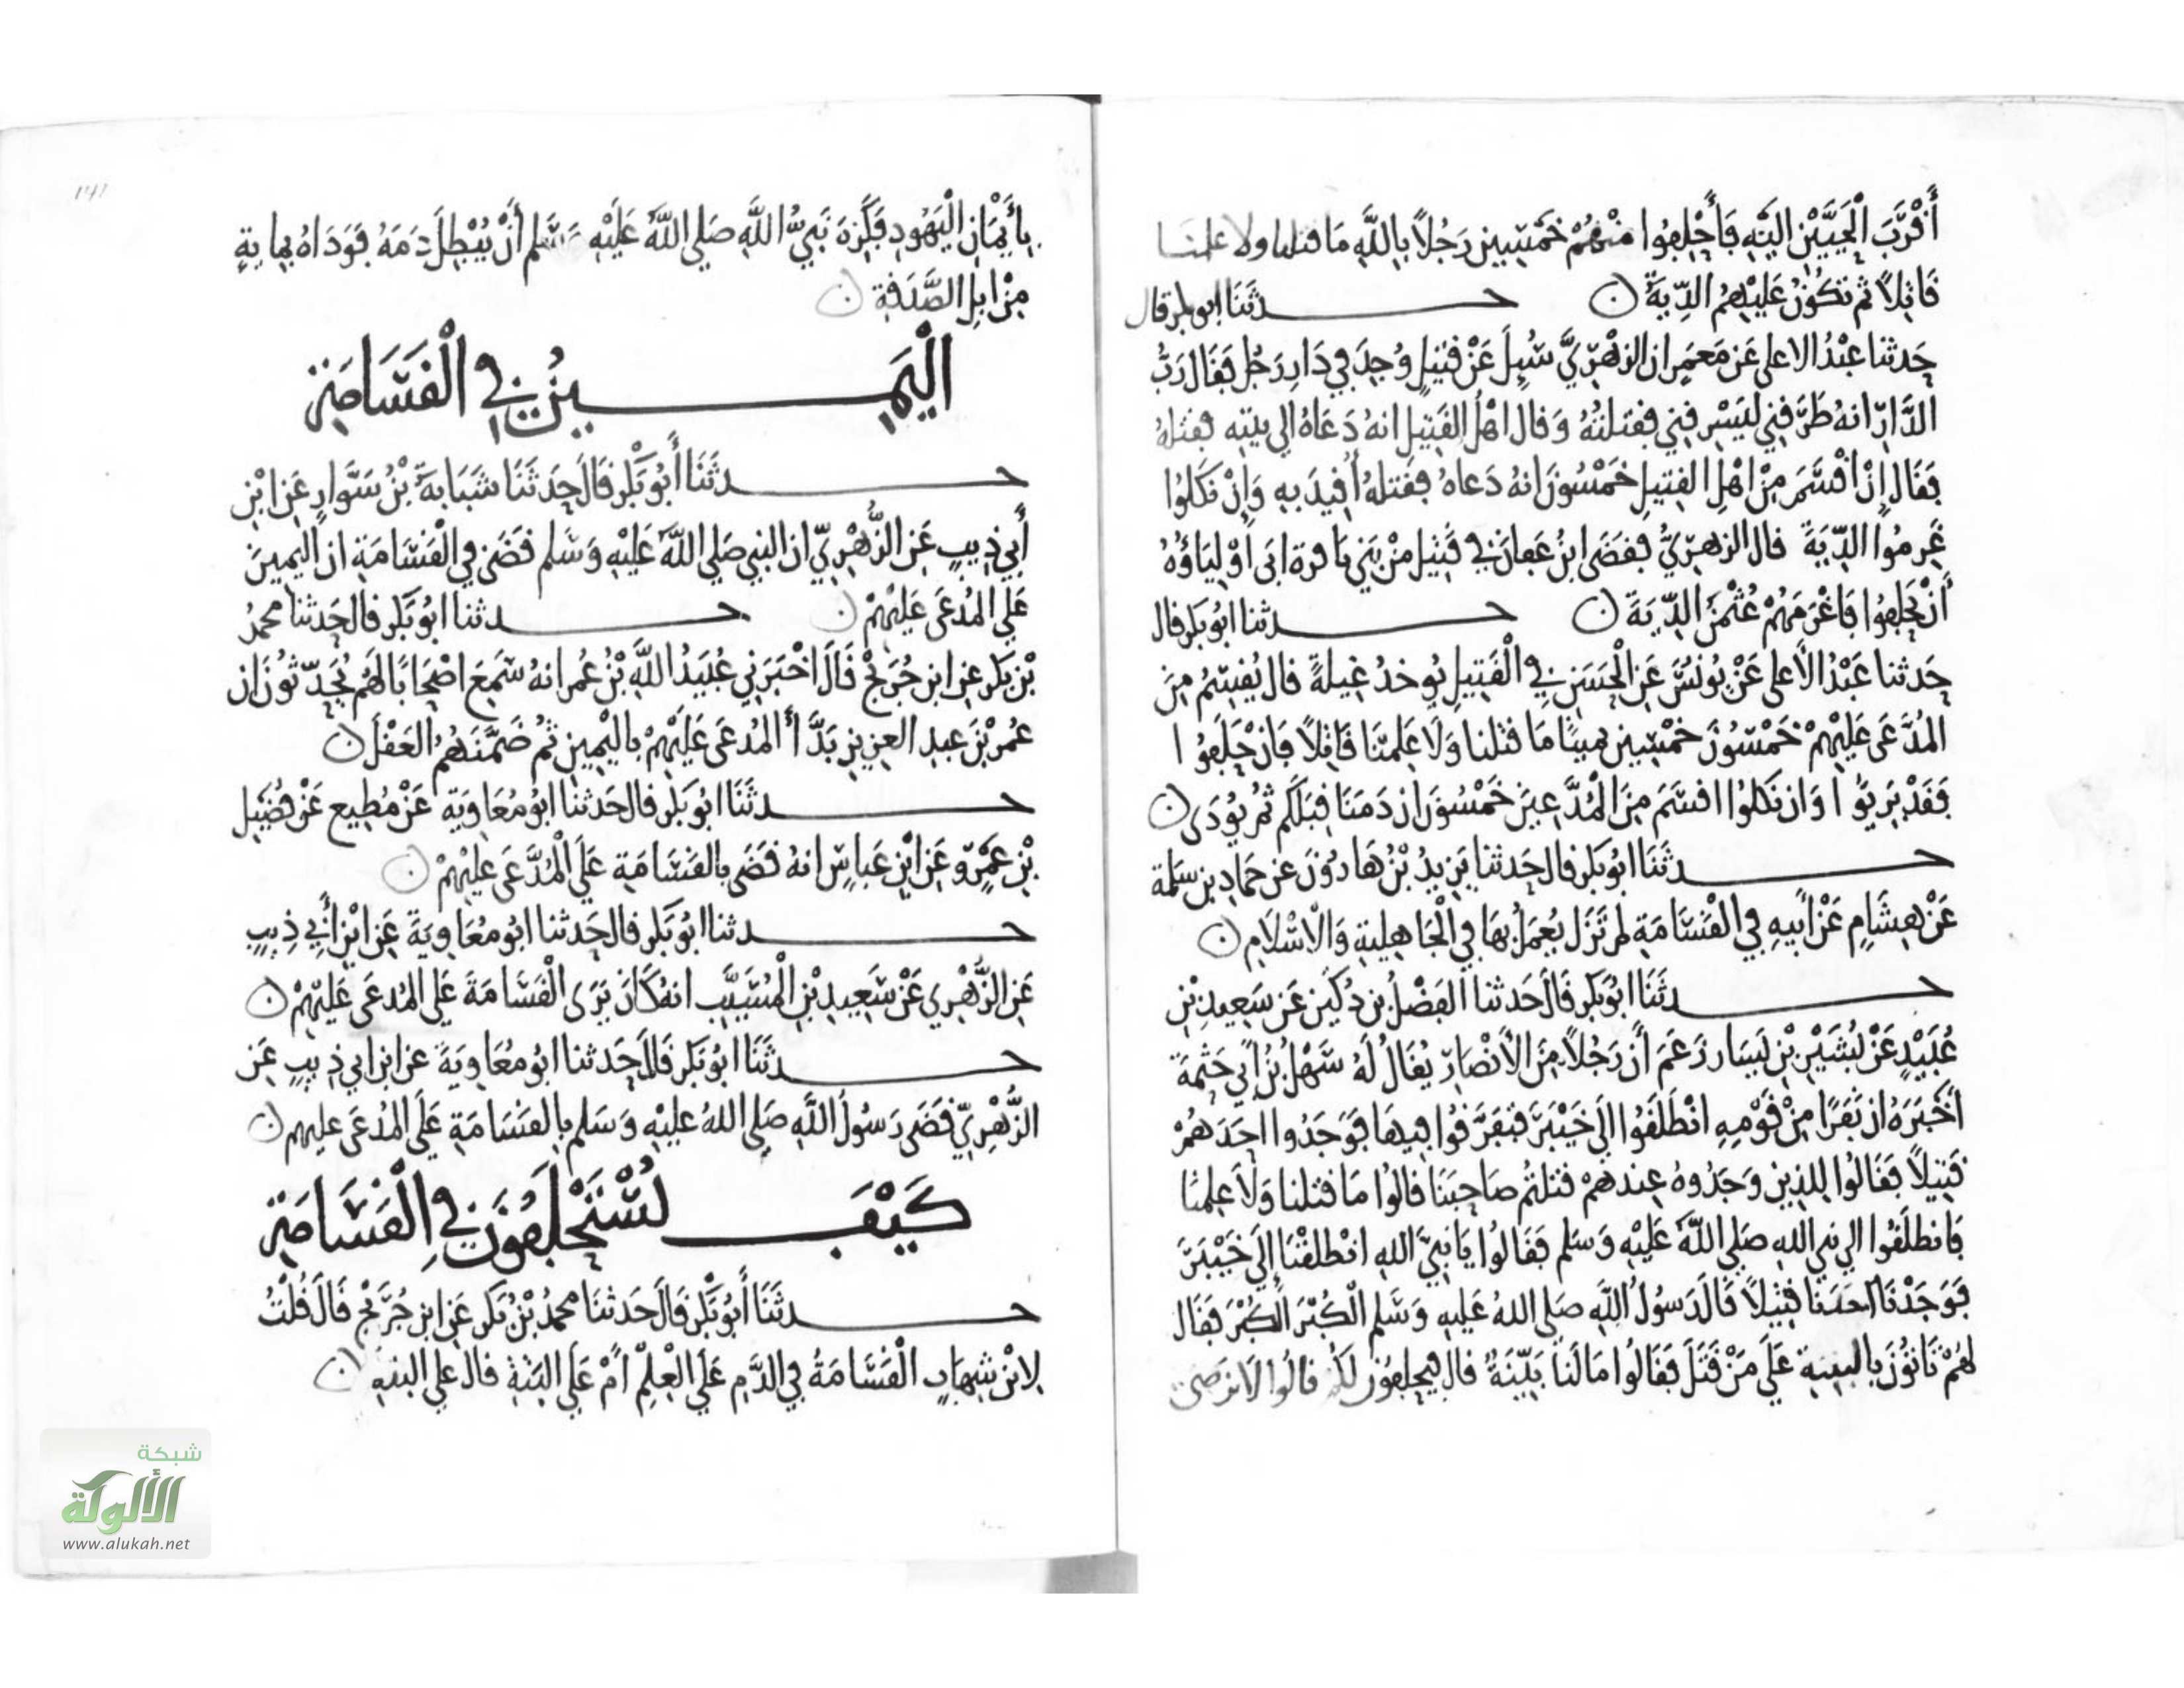 أَقْرَبَ الْحَيَّيْنِ الَيْهِ فَأَحْلِفُوا مِنْهُمْ خَمْسِينَ رَجُلاً بِاللَّهِ مَا قتلنا ولا علمنا
قَاتِلاً ثم تكُونُ عَلَيْهِمُ الدِّيَةُ
حدثَنَا ابو بكر قال
حَدثنا عبْدُ الاعلى عَن مَعمَرٍ ان الزهْرِيَّ سُئِلَ عَنْ قتيلٍ وُجِدَ في دَارِ رَجُل فَقَال رَبُّ
الدَّارِ انهُ طَرَقني ليَسْرِقني فقتلتُهُ وَقال اهْلُ القَتِيلِ انهُ دَعَاهُ الى بيته فقتلهُ
فَقَال إِنْ اقْسَمَ مِنْ اهْلِ القتِيلِ خَمْسُونَ انهُ دَعاهُ فقتلهُ أُقِيدَ بهِ وَإِنْ نكَلُوا
غَرِمُوا الدِّيَةَ قال الزهرِيُّ فقضَى ابنُ عَفانَ في قَتِيل مِنْ بَنِي باقرة ابَى أَوْلِيَاؤُهُ
أَنْ يَحْلِفُوا فَاغْرَمَهُمْ عُثْمنُ الدِّيَةَ
حدثنا ابُو بَكر قال
حَدثنا عَبْدُ الاعلى عَنْ يُونُسَ عَنِ الْحَسَنِ فِي الْقَتِيلِ يُوخدُ غِيلةً قال يُقسِمُ مِنَ
المُدَّعَى عَلَيْهِمْ خَمْسُونَ خَمْسِين يمينًا مَا قتلنا وَلَا عَلِمنَا قَاتِلاً فَان حَلَفُوا
فَقَدْ بَرِيُوا وَان نَكَلُوا اقسَمَ مِنَ الْمُدَّعِينَ خَمْسُونَ ان دَمَنَا قِبَلَكم ثُم يُودَى
حدثَنَا ابُو بَكر قال حَدثنا يَزِيدُ بْنُ هَارُونَ عن حَمادِ بن سَلمة
عَنْ هِشَامٍ عَنْ ابِيهِ فِي الْقَسَامَةِ لم تَزَل يُعْمَلُ بهَا فِي الْجَاهِلِيةِ وَالاسْلَامِ
حدثَنَا ابُو بَكر قَال حَدثنا الفَضْلُ بن دُكَيْن عَن سَعِيدِ بْنِ
عُبَيْدٍ عَنْ بُشَيْرِ بْنِ يَسَار زعَمَ أَن رَجُلاً مِنَ الأَنْصَارِ يُقَالُ لَهُ سَهْلُ بْنُ ابي حَثْمَةَ
أَخْبَرَهُ ان نَفَرًا مِنْ قَوْمِهِ انْطَلَقُوا الَى خَيْبَرَ فتَفَرَّقُوا فِيهَا فَوَجَدُوا احَدَهُمْ
قَتِيلاً فَقَالُوا لِلذِينَ وَجَدُوهُ عِندهمْ قتلتُم صَاحِبَنَا قالُوا مَا قتلنا وَلاَ عِلمنا
فَانطلَقُوا الى نبي الله صَلى اللهُ عَلَيْهِ وَسَلم فَقَالُوا يَا نَبِيَّ الله انْطلقْنَا إلَى خَيْبَرَ
فوَجَدْنَا احَدَنا قتِيلاً قَالَ رَسُولُ اللَّهِ صَلى اللهُ عَليهِ وَسَلم الْكُبْرَ الْكُبْرَ فقَال
لهُمْ تَاتوُنَ بالبينةِ عَلَى مَنْ قَتَلَ فَقَالُوا مَا لَنا بَيِّنَةٌ قال فيحلِفُونَ لكم قالُوا لا نرضى
١٩١
بِأَيْمَانِ الْيَهُودِ فَكَرِهَ نَبِيُّ اللَّهِ صَلى اللَّهُ عَلَيْهِ وَسَلم أَنْ يُبْطِلَ دَمَهُ فَوَدَاهُ بِمايةٍ
مِنْ ابِلِ الصَّدَقةِ
الْيَمِينُ فِي الْقَسَامَةِ
حدثَنَا أَبُو بَكْر قَالَ حَدثَنَا شَبَابَةُ بْنُ سَوَّارٍ عَنِ ابْنِ
أَبِي ذِيبٍ عَنِ الزُّهْرِيِّ ان النبي صَلى اللَّهُ عَلَيْهِ وَسَلم قضَى فِي الْقَسَامَةِ ان اليمينَ
عَلى المُدعَى عَلَيْهِمْ
حدثنا ابُو بَكر قال حَدثنا محمدُ
بْن بَكر عن ابن جُرَيْج قَالَ اخْبَرَنِي عُبَيدُ اللَّهِ بْنُ عُمر انهُ سَمِعَ اصْحَابًا لَهُم يُحَدّثُونَ ان
عُمر بْنَ عبدِ العزِيزِ بَدَّأَ المُدعَى عَلَيْهِمْ باليْمِين ثمُ ضَمَّنَهُمُ العَقْلَ
حدثَنَا ابُو بَكر قال حَدثنا ابُو مُعَاوِيَةَ عَنْ مُطِيعٍ عَنْ فُضَيْلِ
بْنِ عَمْرٍو عَنِ ابْنِ عَبَاسٍ انهُ قضَى بالقَسَامَةِ عَلَى الْمُدَّعَى عَلَيْهِمْ
حدثنا ابُو بَكر قال حَدثنا ابُو مُعَاوِيَةَ عَنِ ابْنِ أَبِي ذِيبٍ
عَنِ الزُّهْرِي عَنْ سَعِيدِ بْنِ الْمُسَيِّب انهُ كَانَ يَرَى الْقَسَامَةَ عَلى المُدعَى عَلَيْهِمْ
حدثَنَا ابُو بَكر قَالَ حَدثنا ابُو مُعَاوِيَةَ عن ابن ابي ذِيبٍ عَنِ
الزُّهْرِيِّ قضَى رَسُولُ اللَّهِ صَلى اللهُ عَليْهِ وَسَلم بِالقَسَامَةِ عَلَى المُدعَى عليهم
كَيْفَ يُسْتَحْلَفُونَ فِي الْقَسَامَةِ
حدثَنَا أَبُو بَكْر قَالَ حَدثنَا محمدُ بْنُ بَكر عَنِ ابن جُرَيْج قَالَ قُلْتُ
لِابْنِ شِهَابٍ الْقَسَامَةُ فِي الدَّمِ عَلَى الْعِلْمِ أَمْ عَلَى البَتةِ قال على البتةِ
شبكة
الألوكة
www.alukah.net